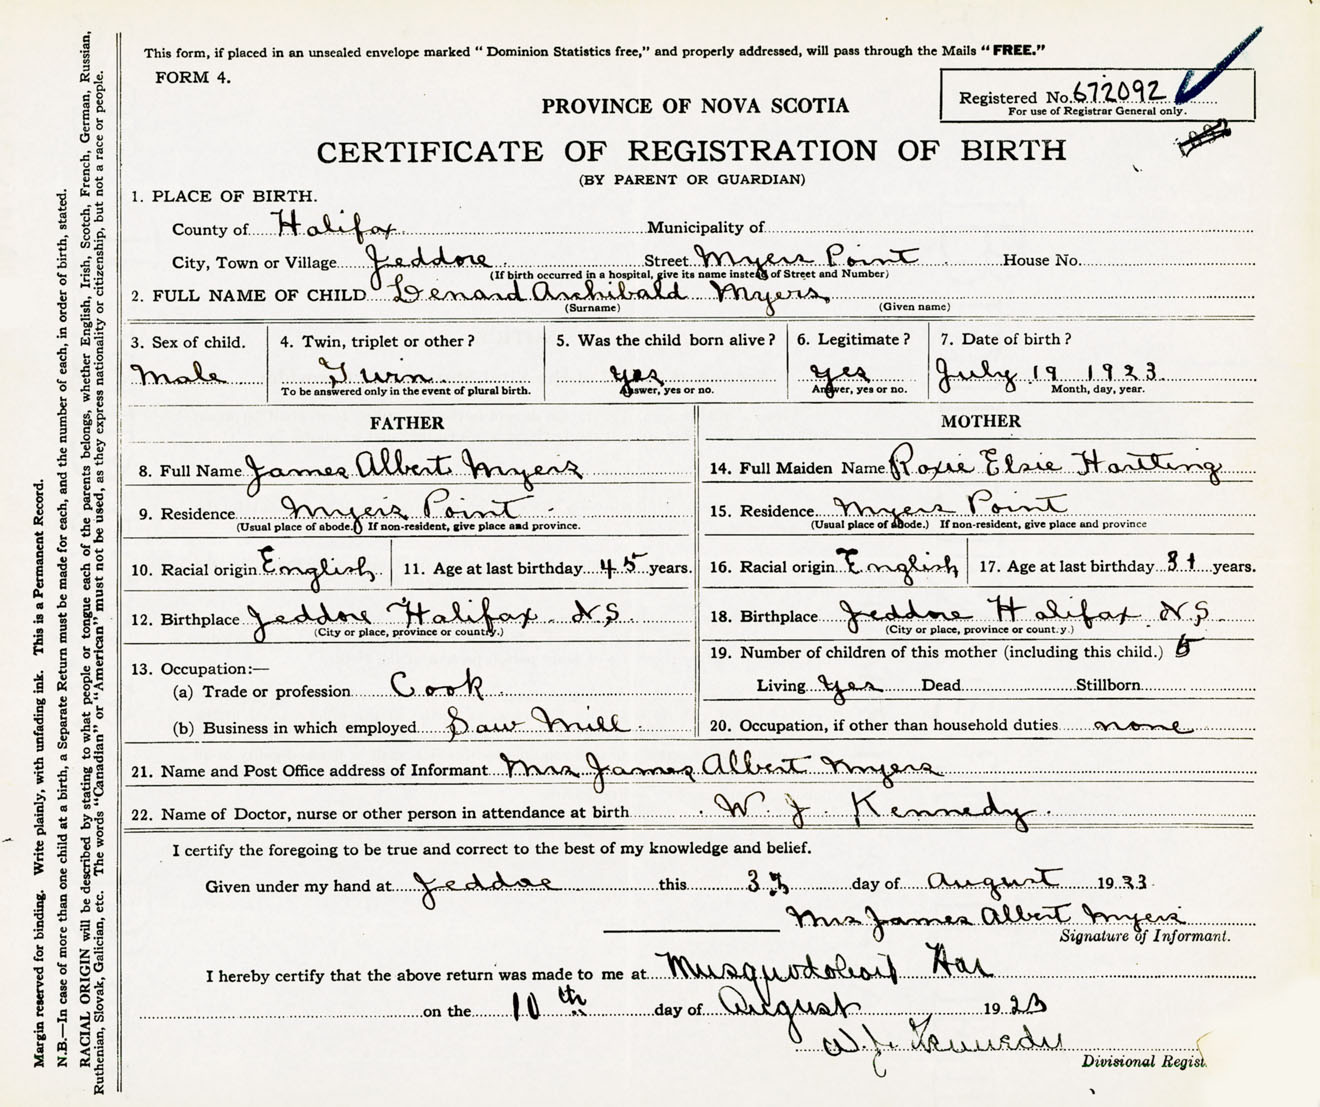 This form, if placed in an unsealed envelope marked "Dominion Statistics free," and properly addressed, will pass through the Mails "FREE."
FORM 4.
Registered No. 672092
For use of Registrar General only.
PROVINCE OF NOVA SCOTIA
CERTIFICATE OF REGISTRATION OF BIRTH
(BY PARENT OR GUARDIAN)
1. PLACE OF BIRTH.
County of Halifax Municipality of
City, Town or Village Jeddore Street Myers Point House No.
(If birth occurred in a hospital, give its name instead of Street and Number)
2. FULL NAME OF CHILD Denard Archibald Myers
(Surname) (Given name)
3. Sex of child. 4. Twin, triplet or other? 5. Was the child born alive? 6. Legitimate? 7. Date of birth?
Male Twin yes yes July 19 1923
To be answered only in the event of plural birth. Answer, yes or no. Answer, yes or no. Month, day, year.
FATHER MOTHER
8. Full Name James Albert Myers 14. Full Maiden Name Roxie Elsie Hartling
9. Residence Myers Point 15. Residence Myers Point
(Usual place of abode.) If non-resident, give place and province. (Usual place of abode.) If non-resident, give place and province
10. Racial origin English 11. Age at last birthday 45 years. 16. Racial origin English 17. Age at last birthday 31 years.
12. Birthplace Jeddore Halifax N.S 18. Birthplace Jeddore Halifax N.S
(City or place, province or country.) (City or place, province or count.y.)
13. Occupation:— 19. Number of children of this mother (including this child.) 5
(a) Trade or profession Cook Living yes Dead Stillborn
(b) Business in which employed Saw Mill 20. Occupation, if other than household duties none
21. Name and Post Office address of Informant Mrs James Albert Myers
22. Name of Doctor, nurse or other person in attendance at birth W. J. Kennedy.
I certify the foregoing to be true and correct to the best of my knowledge and belief.
Given under my hand at Jeddore this day of August 19
Mrs James Albert Myers
Signature of Informant.
I hereby certify that the above return was made to me at Musquodoboit Har
on the 10th day of August 1923
W. J. Kennedy
Divisional Regist
Margin reserved for binding. Write plainly, with unfading ink. This is a Permanent Record.
N.B.—In case of more than one child at a birth, a Separate Return must be made for each, and the number of each, in order of birth, stated.
RACIAL ORIGIN will be described by stating to what people or tongue each of the parents belongs, whether English, Irish, Scotch, French, German, Russian,
Ruthenian, Slovak, Galician, etc. The words "Canadian" or "American" must not be used, as they express nationality or citizenship, but not a race or people.